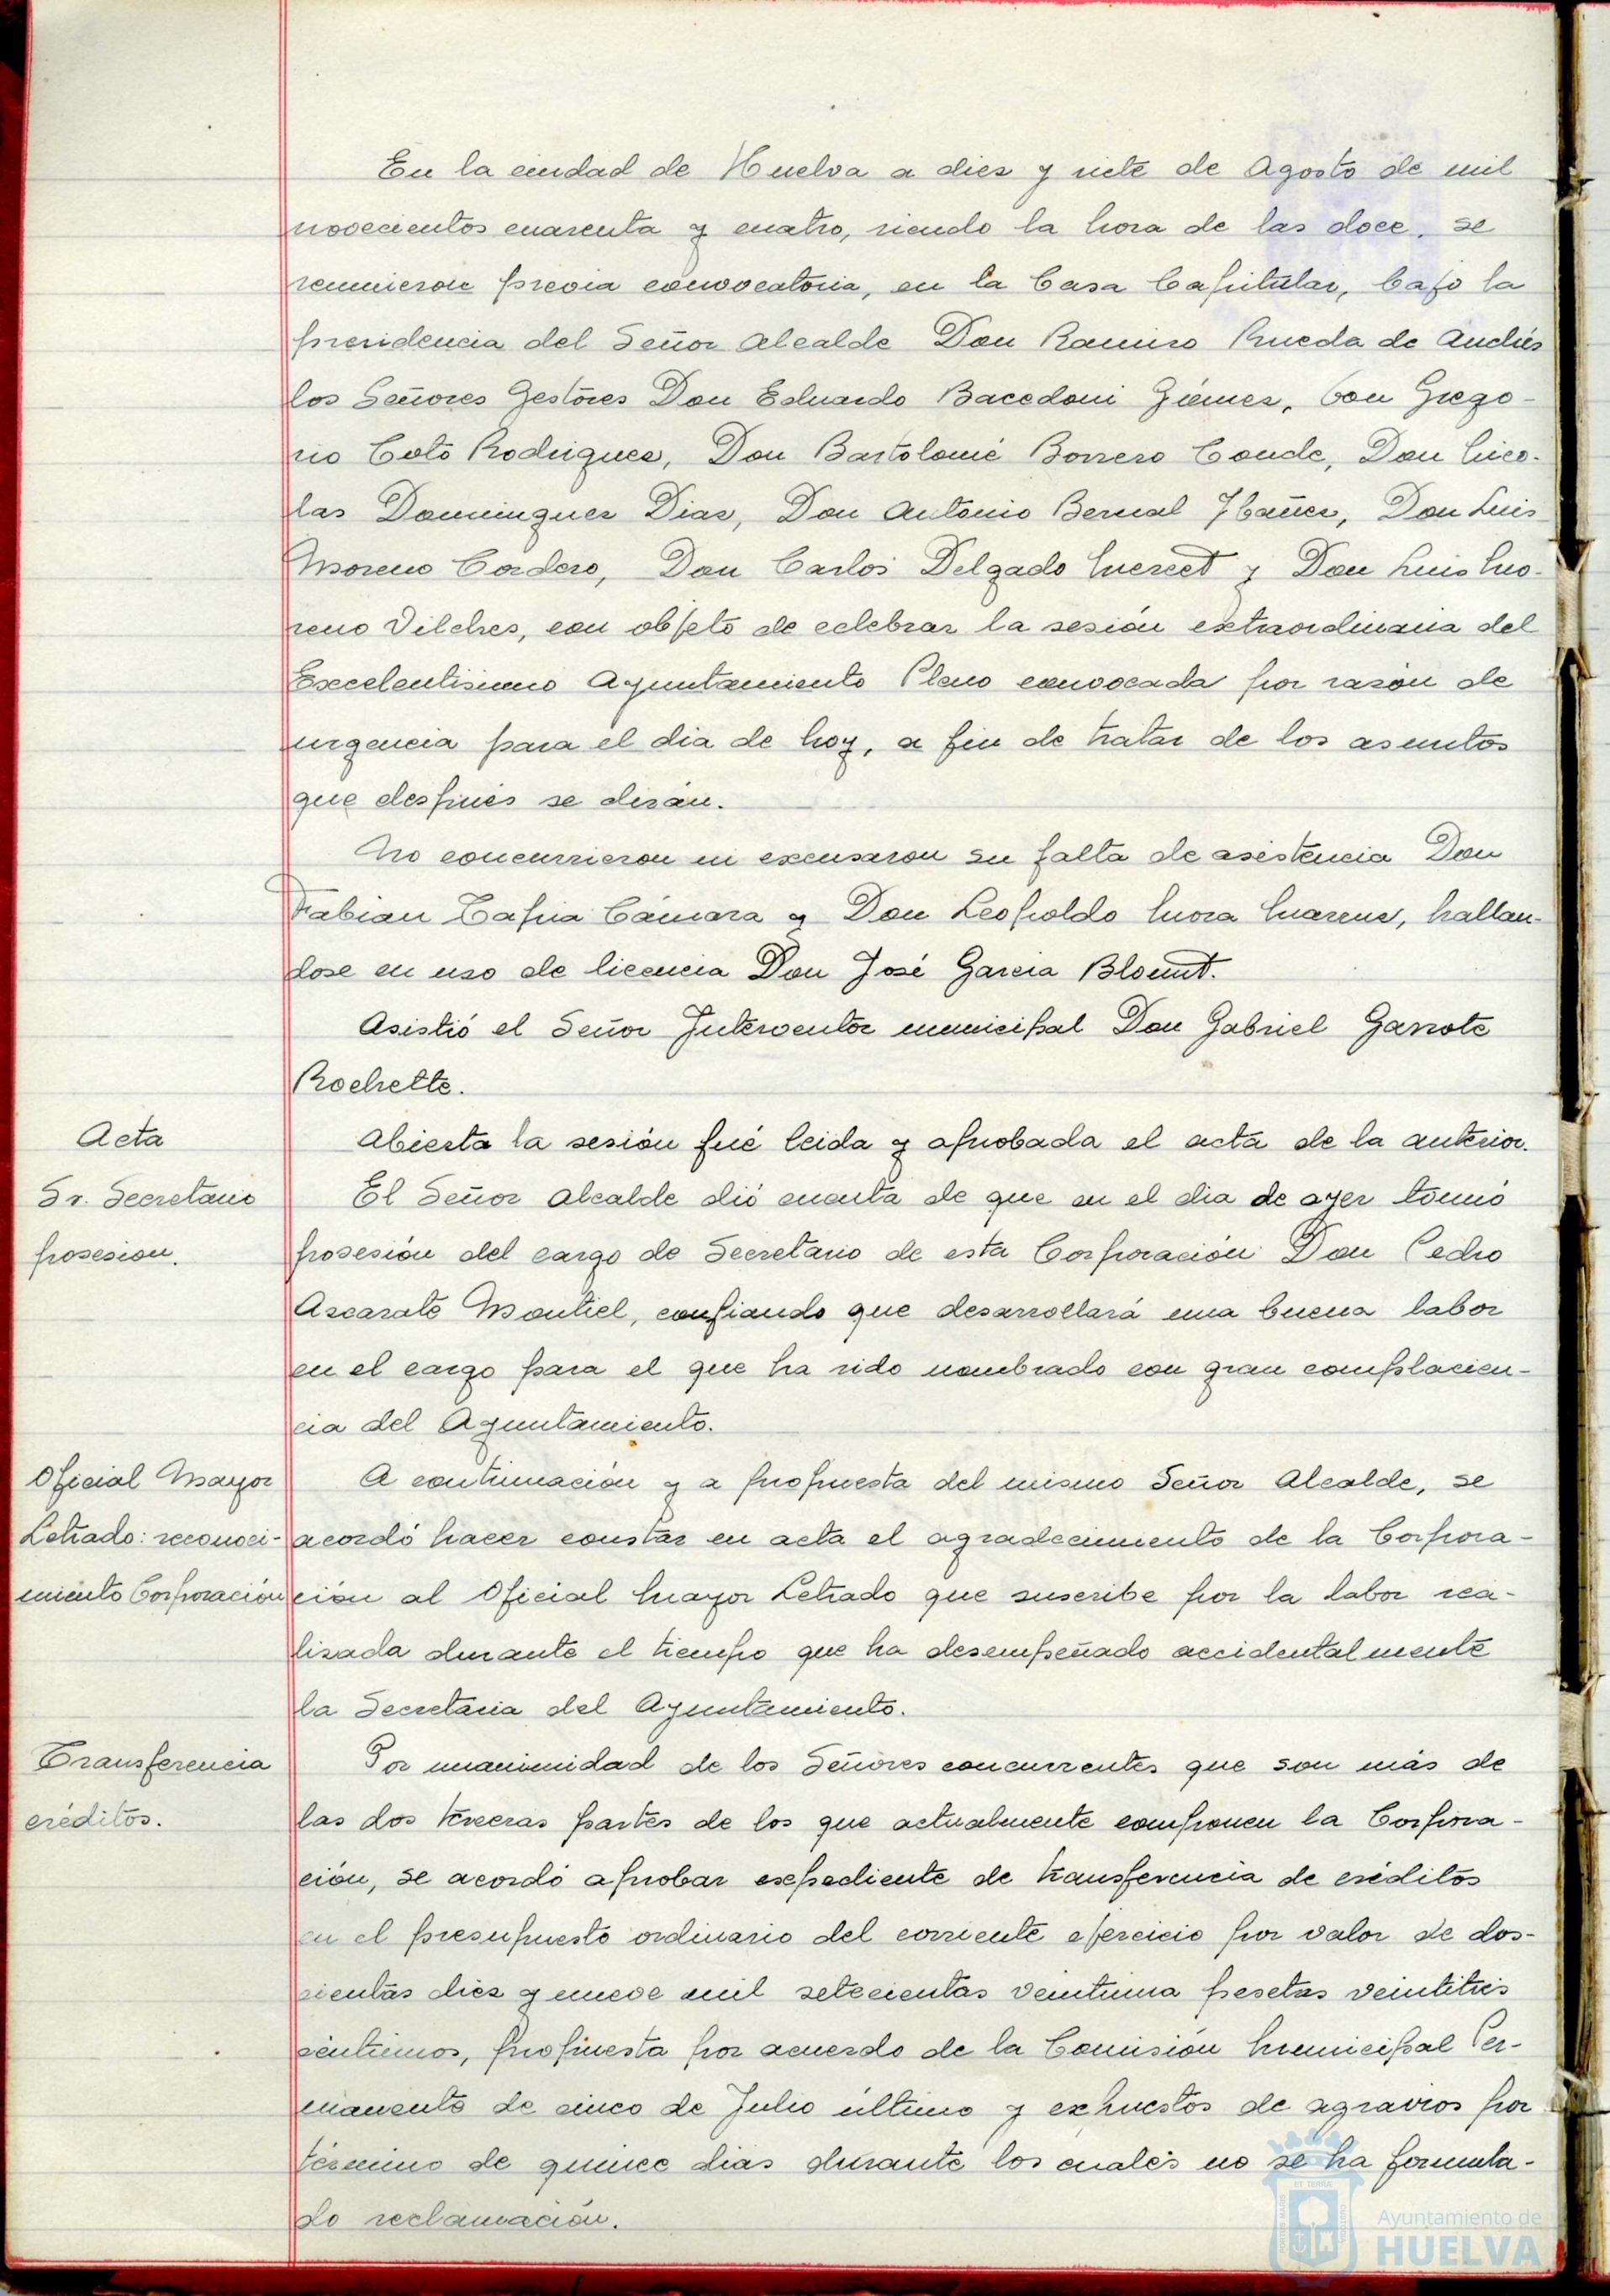 En la ciudad de Huelva a diez y siete de Agosto de mil
novecientos cuarenta y cuatro, siendo la hora de las doce, se
reunieron previa convocatoria, en la Casa Capitular, bajo la
presidencia del Señor Alcalde Don Ramiro Rueda de Andrés
los Señores Gestores Don Eduardo Bacedoni Giémez, Don Grego-
rio Coto Rodriguez, Don Bartolomé Borrero Conde, Don Nico-
las Dominguez Diaz, Don Antonio Bernal Ybañez, Don Luis
Moreno Cordero, Don Carlos Delgado y Don Luis Mo-
reno Vilches, con objeto de celebrar la sesión extraordinaria del
Excelentisimo Ayuntamiento Pleno convocada por razón de
urgencia para el dia de hoy, a fin de tratar de los asuntos
que después se dirán.
No concurrieron ni excusaron su falta de asistencia Don
Fabian Tapia Cámara y Don Leopoldo Mora, hallan-
dose en uso de licencia Don José Garcia Blount.
Asistió el Señor Interventor municipal Don Gabriel Garrote
Rochette.
Acta
Abierta la sesión fué leida y aprobada el acta de la anterior.
Sr. Secretario
posesion.
El Señor Alcalde dió cuenta de que en el dia de ayer tomó
posesión del cargo de Secretario de esta Corporación Don Pedro
Azcarate Montiel, confiando que desarrollará una buena labor
en el cargo para el que ha sido nombrado con gran complacen-
cia del Ayuntamiento.
Oficial Mayor
Letrado: reconoci-
miento Corporación
A continuación y a propuesta del mismo Señor Alcalde, se
acordó hacer constar en acta el agradecimiento de la Corpora-
ción al Oficial Mayor Letrado que suscribe por la labor rea-
lizada durante el tiempo que ha desempeñado accidentalmente
la Secretaria del Ayuntamiento.
Transferencia
créditos.
Por unanimidad de los Señores concurrentes que son más de
las dos terceras partes de los que actualmente componen la Corpora-
ción, se acordó aprobar expediente de transferencia de créditos
en el presupuesto ordinario del corriente ejercicio por valor de dos-
cientas diez y nueve mil setecientas veintiuna pesetas veintitrés
céntimos, propuesta por acuerdo de la Comisión Municipal Per-
manente de cinco de Julio último y expuestos de agravios por
término de quince dias durante los cuales no se ha formula-
do reclamación.
Ayuntamiento de
HUELVA